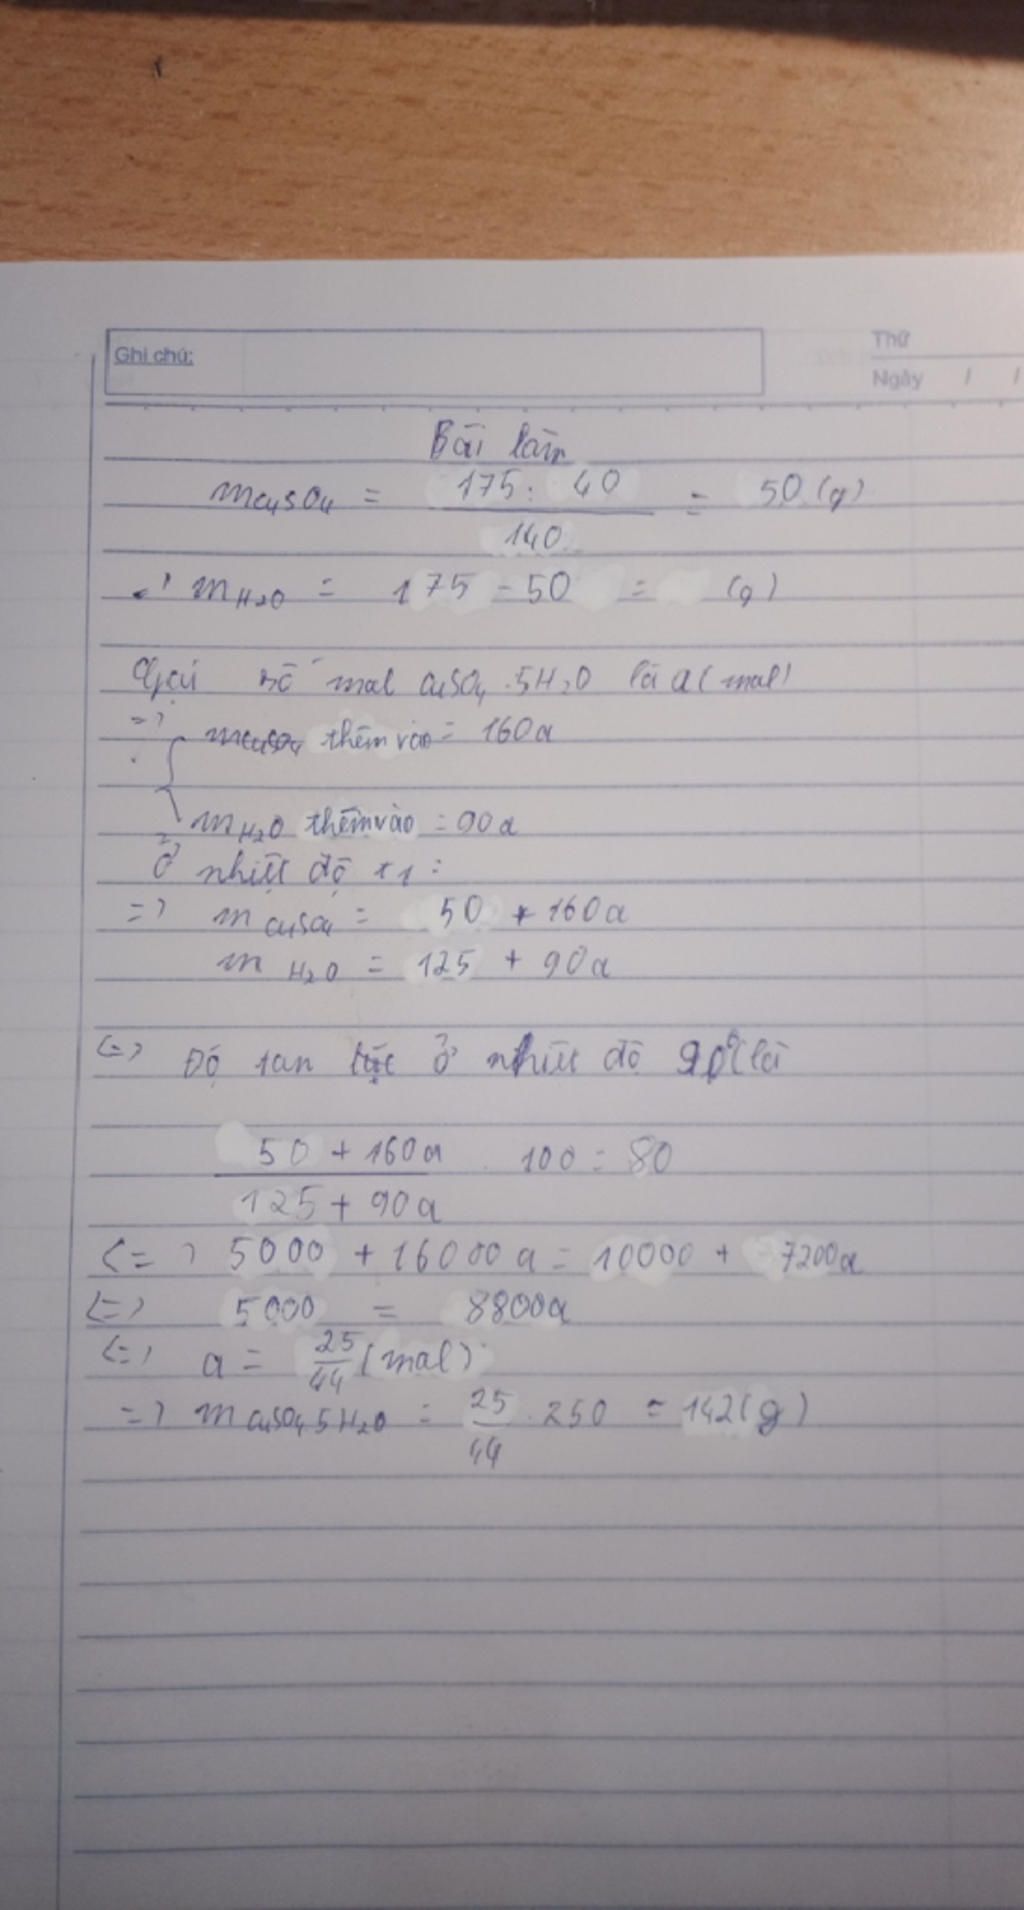 Ghi chú:
Thứ
Ngày / /
Bài làm
mCuSO4 = 175 . 40 / 140 = 50 (g)
=> mH2O = 175 - 50 = (g)
Gọi số mol CuSO4.5H2O là a (mol)
=>
mCuSO4 thêm vào = 160a
mH2O thêm vào = 90a
Ở nhiệt độ t1:
=> m CuSO4 = 50 + 160a
m H2O = 125 + 90a
<=> Độ tan ở nhiệt độ 90°C là
50 + 160a / 125 + 90a . 100 = 80
<=> 5000 + 16000a = 10000 + 7200a
<=> 5000 = 8800a
<=> a = 25/44 (mol)
=> m CuSO4.5H2O = 25/44 . 250 = 142 (g)